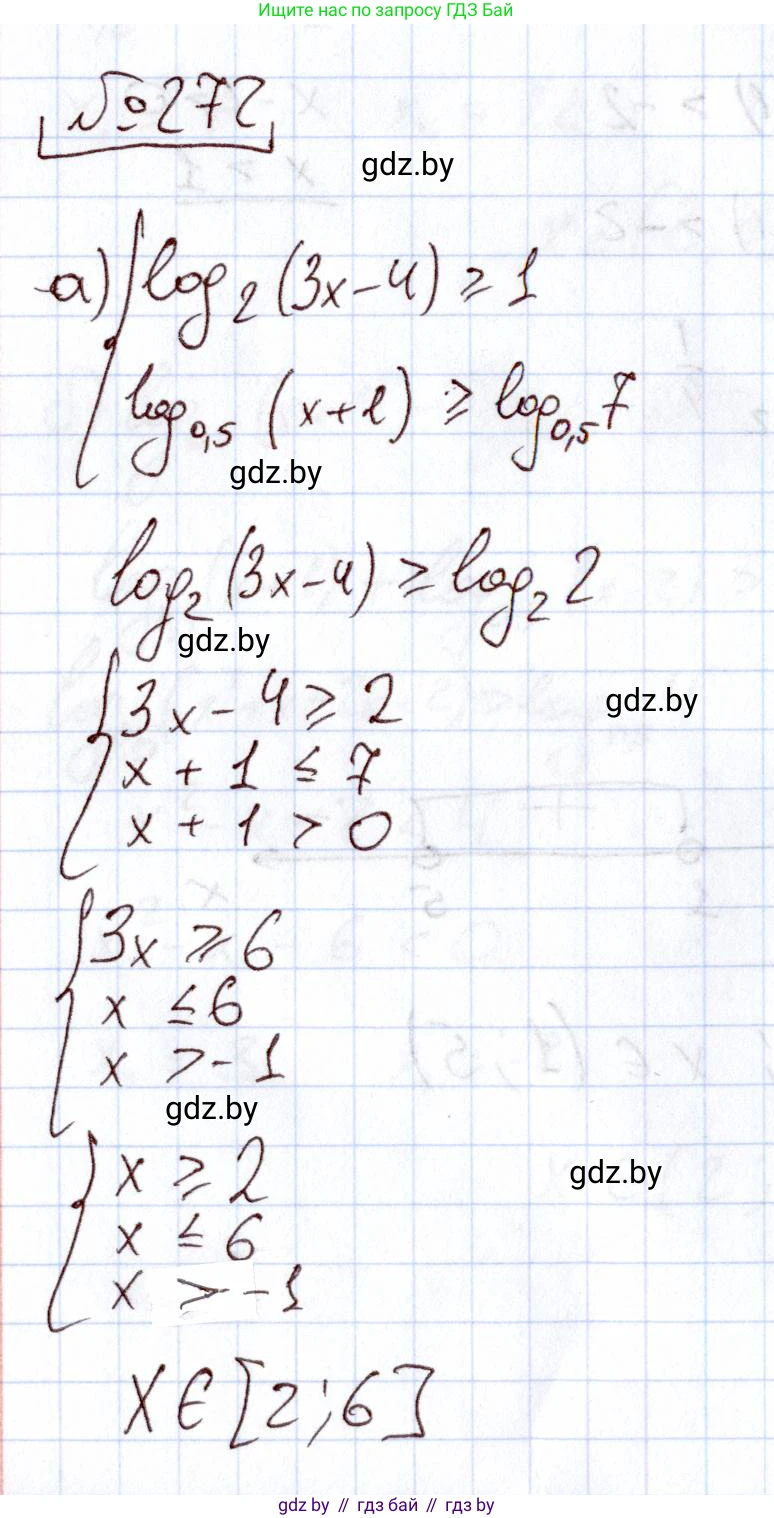 Ищите нас по запросу ГДЗ Бай
№272
gdz.by
а) { log₂(3x-4) ≥ 1
log₀,₅(x+1) ≥ log₀,₅7
gdz.by
log₂(3x-4) ≥ log₂2
gdz.by
{ 3x-4 ≥ 2
gdz.by
x+1 ≤ 7
x+1 > 0
{ 3x ≥ 6
x ≤ 6
x > -1
gdz.by
{ x ≥ 2
gdz.by
x ≤ 6
x > -1
x ∈ [2;6]
gdz by // гдз бай // гдз by